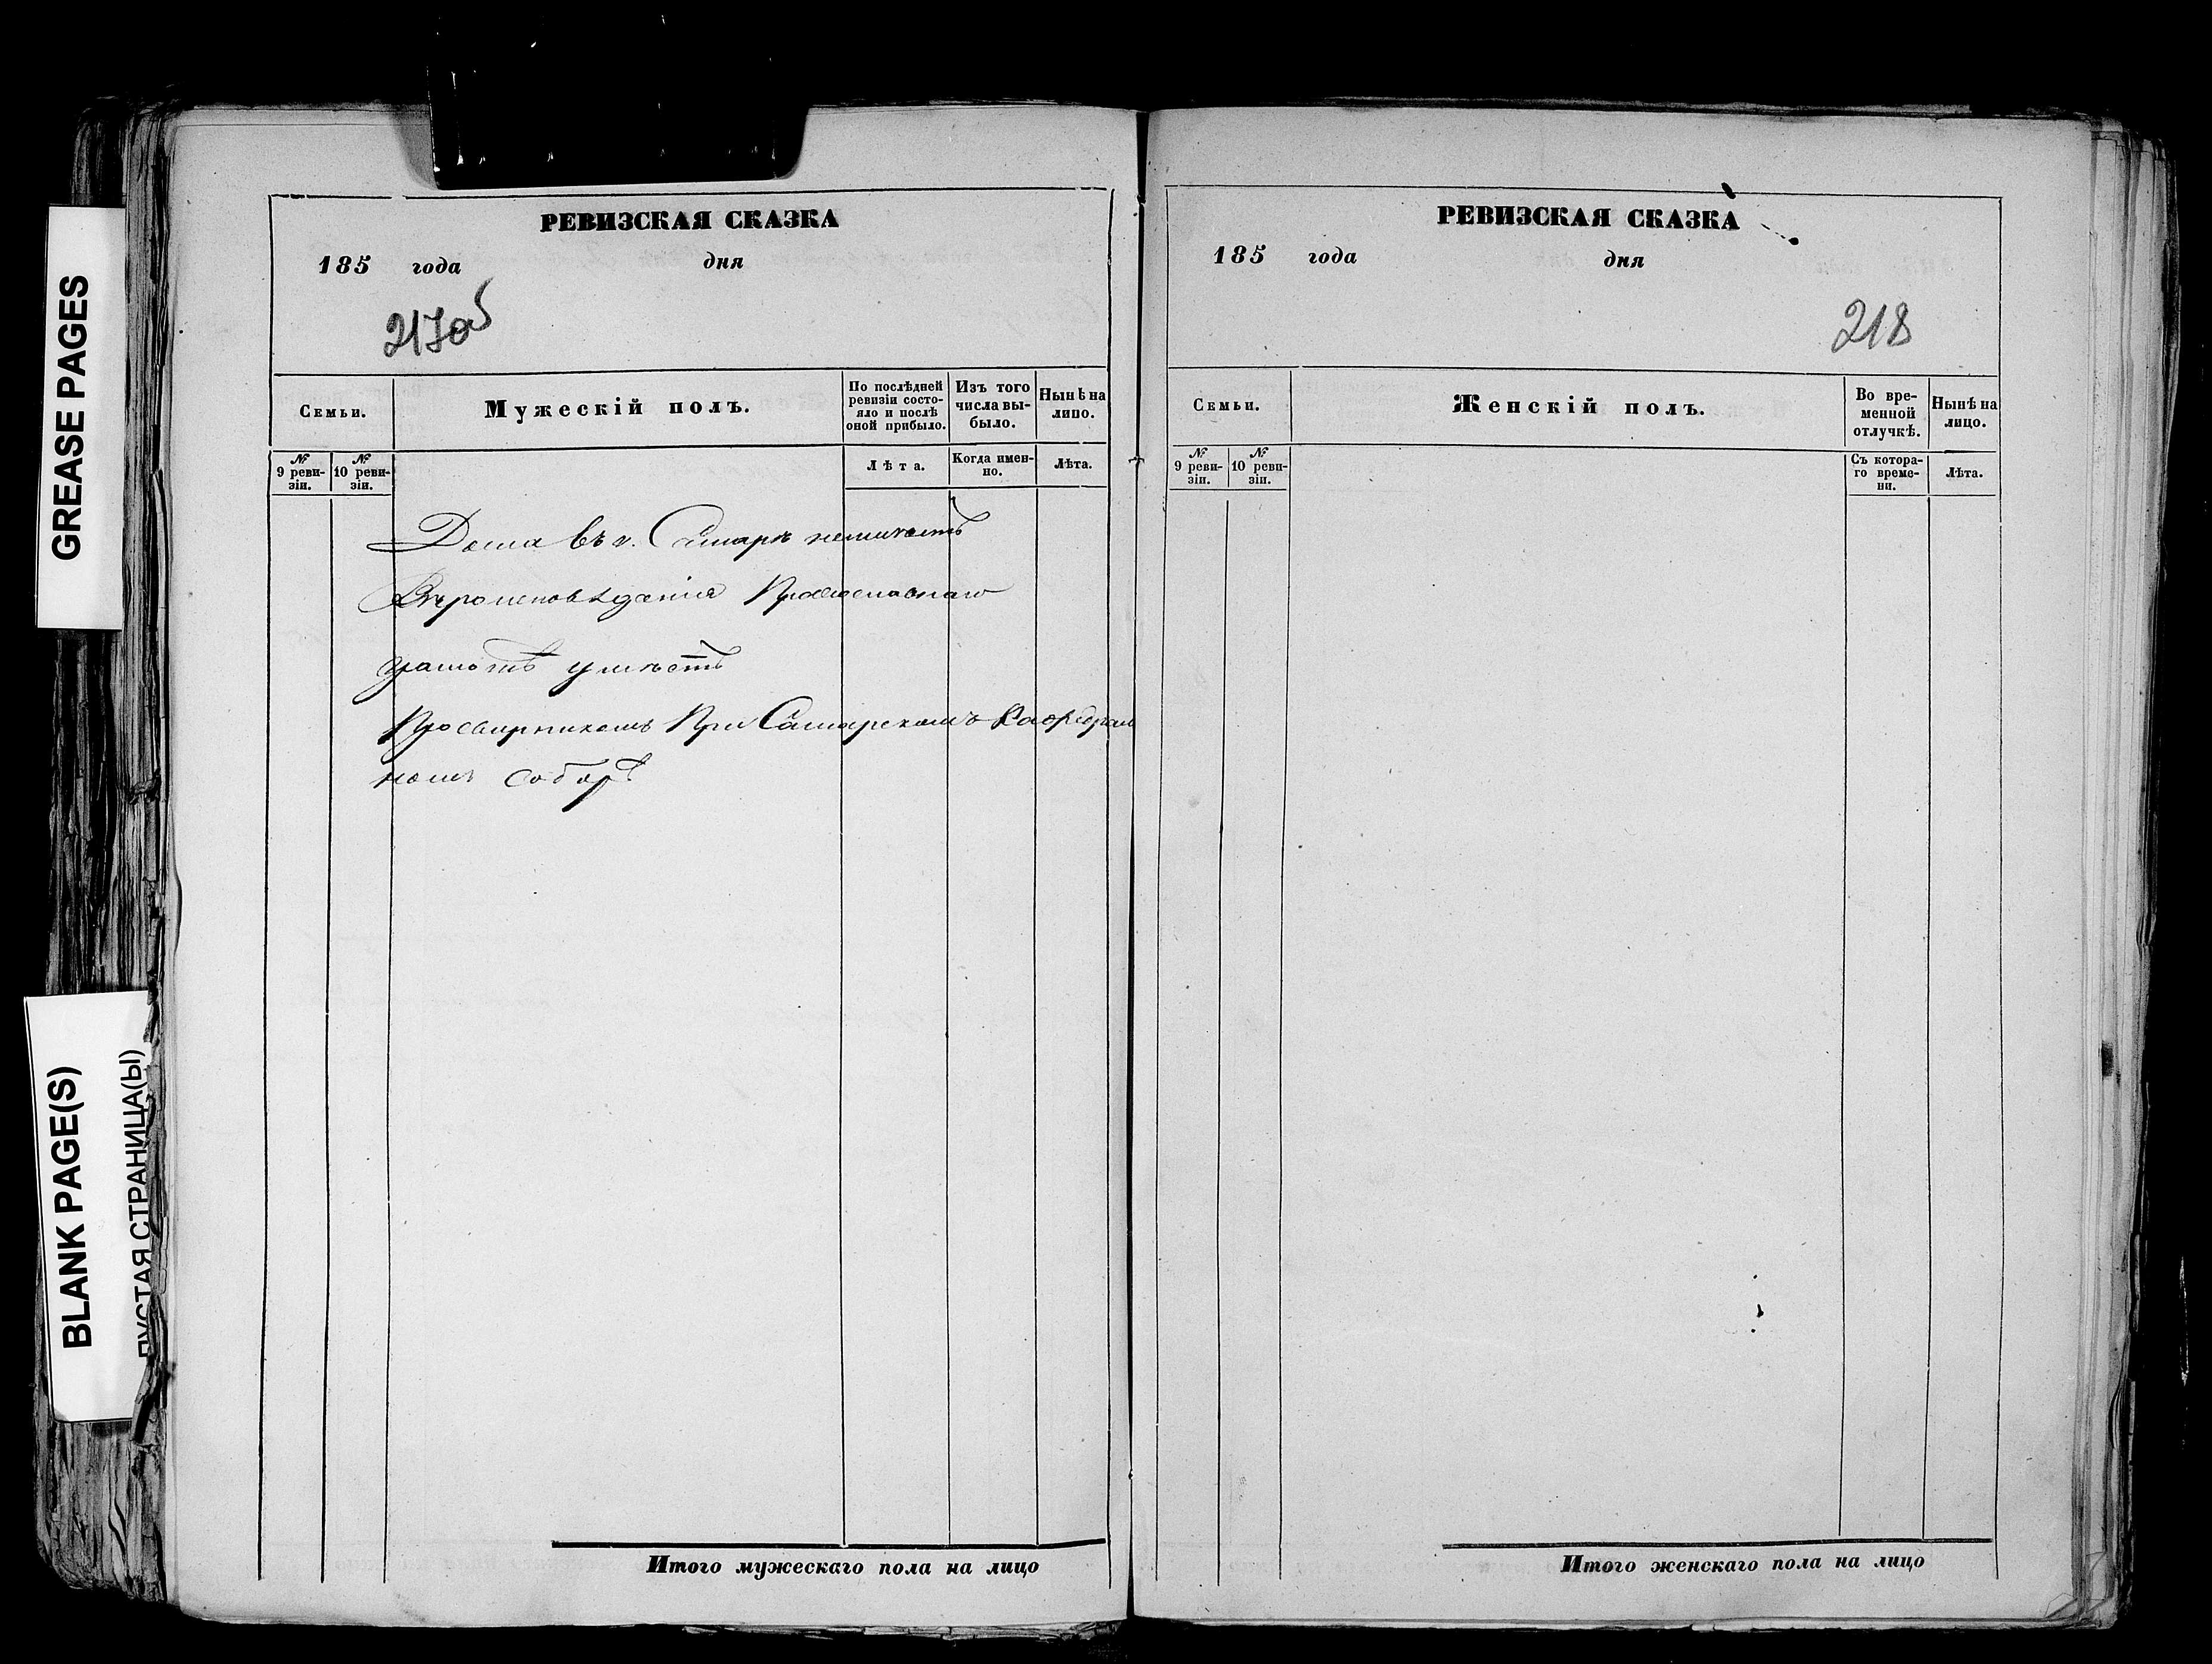 GREASE PAGES
BLANK PAGE(S)
ПУСТАЯ СТРАНИЦА(Ы)
РЕВИЗСКАЯ СКАЗКА
185 года дня
217об
Семьи.
Мужескій полъ.
По послѣдней ревизіи состо-
яло и послѣ
оной прибыло.
Изъ того
числа вы-
было.
Нынѣ на
лицо.
№
9 реви-
зіи.
№
10 реви-
зіи.
Лѣта.
Когда имен-
но.
Лѣта.
Дома въ г. Самарѣ неимѣетъ
Вѣроисповѣданія Православнаго
грамотѣ умѣетъ
Просвирникомъ При Самарскомъ Кафедраль
номъ соборѣ
Итого мужескаго пола на лицо
РЕВИЗСКАЯ СКАЗКА
185 года дня
218
Семьи.
Женскій полъ.
Во вре-
менной
отлучкѣ.
Нынѣ на
лицо.
№
9 реви-
зіи.
№
10 реви-
зіи.
Съ котора-
го време-
ни.
Лѣта.
Итого женскаго пола на лицо